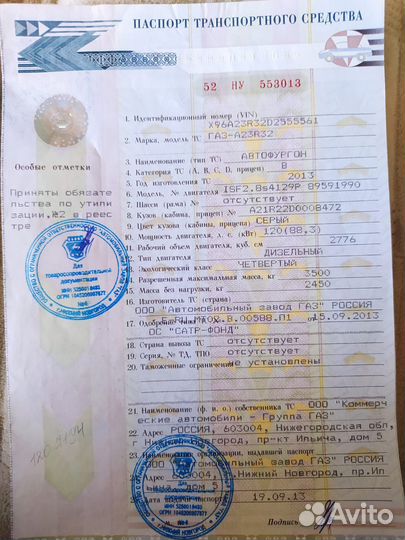 ПАСПОРТ ТРАНСПОРТНОГО СРЕДСТВА
52 НУ 553013
1. Идентификационный номер (VIN) X96A23R32D2555561
2. Марка, модель ТС ГАЗ-A23R32
3. Наименование (тип ТС) АВТОФУРГОН
4. Категория ТС (A, B, C, D, прицеп) B
5. Год изготовления ТС 2013
6. Модель, № двигателя ISF2.8s4129P 89591990
7. Шасси (рама) № отсутствует
8. Кузов (кабина, прицеп) № A21R22D0008472
9. Цвет кузова (кабины, прицепа) СЕРЫЙ
10. Мощность двигателя, л. с. (кВт) 120(88,3)
11. Рабочий объем двигателя, куб. см 2776
12. Тип двигателя ДИЗЕЛЬНЫЙ
13. Экологический класс ЧЕТВЕРТЫЙ
14. Разрешенная максимальная масса, кг 3500
15. Масса без нагрузки, кг 2450
16. Изготовитель ТС (страна)
ООО "Автомобильный завод ГАЗ" РОССИЯ
17. Одобрение типа ТС №
RU.MT02.B.00588.П1 от 15.09.2013
ОС "САТР-ФОНД"
18. Страна вывоза ТС отсутствует
19. Серия, № ТД, ТПО отсутствует
20. Таможенные ограничения не установлены
21. Наименование (ф. и. о.) собственника ТС ООО "Коммерч
еские автомобили - Группа ГАЗ"
22. Адрес РОССИЯ, 603004, Нижегородская обл,
г Нижний Новгород, пр-кт Ильича, дом 5
23. Наименование организации, выдавшей паспорт
ООО "Автомобильный завод ГАЗ" РОССИЯ
24. Адрес 603004, г.Нижний Новгород, пр.Ил
ьича, дом 5
25. Дата выдачи паспорта 19.09.13
М. П. Подпись
Особые отметки
Приняты обязате
льства по утили
зации.№2 в реес
тре
Для
товаросопроводительной
документации
ИНН 5250018433
ОГРН 1045206907877
№4
Avito